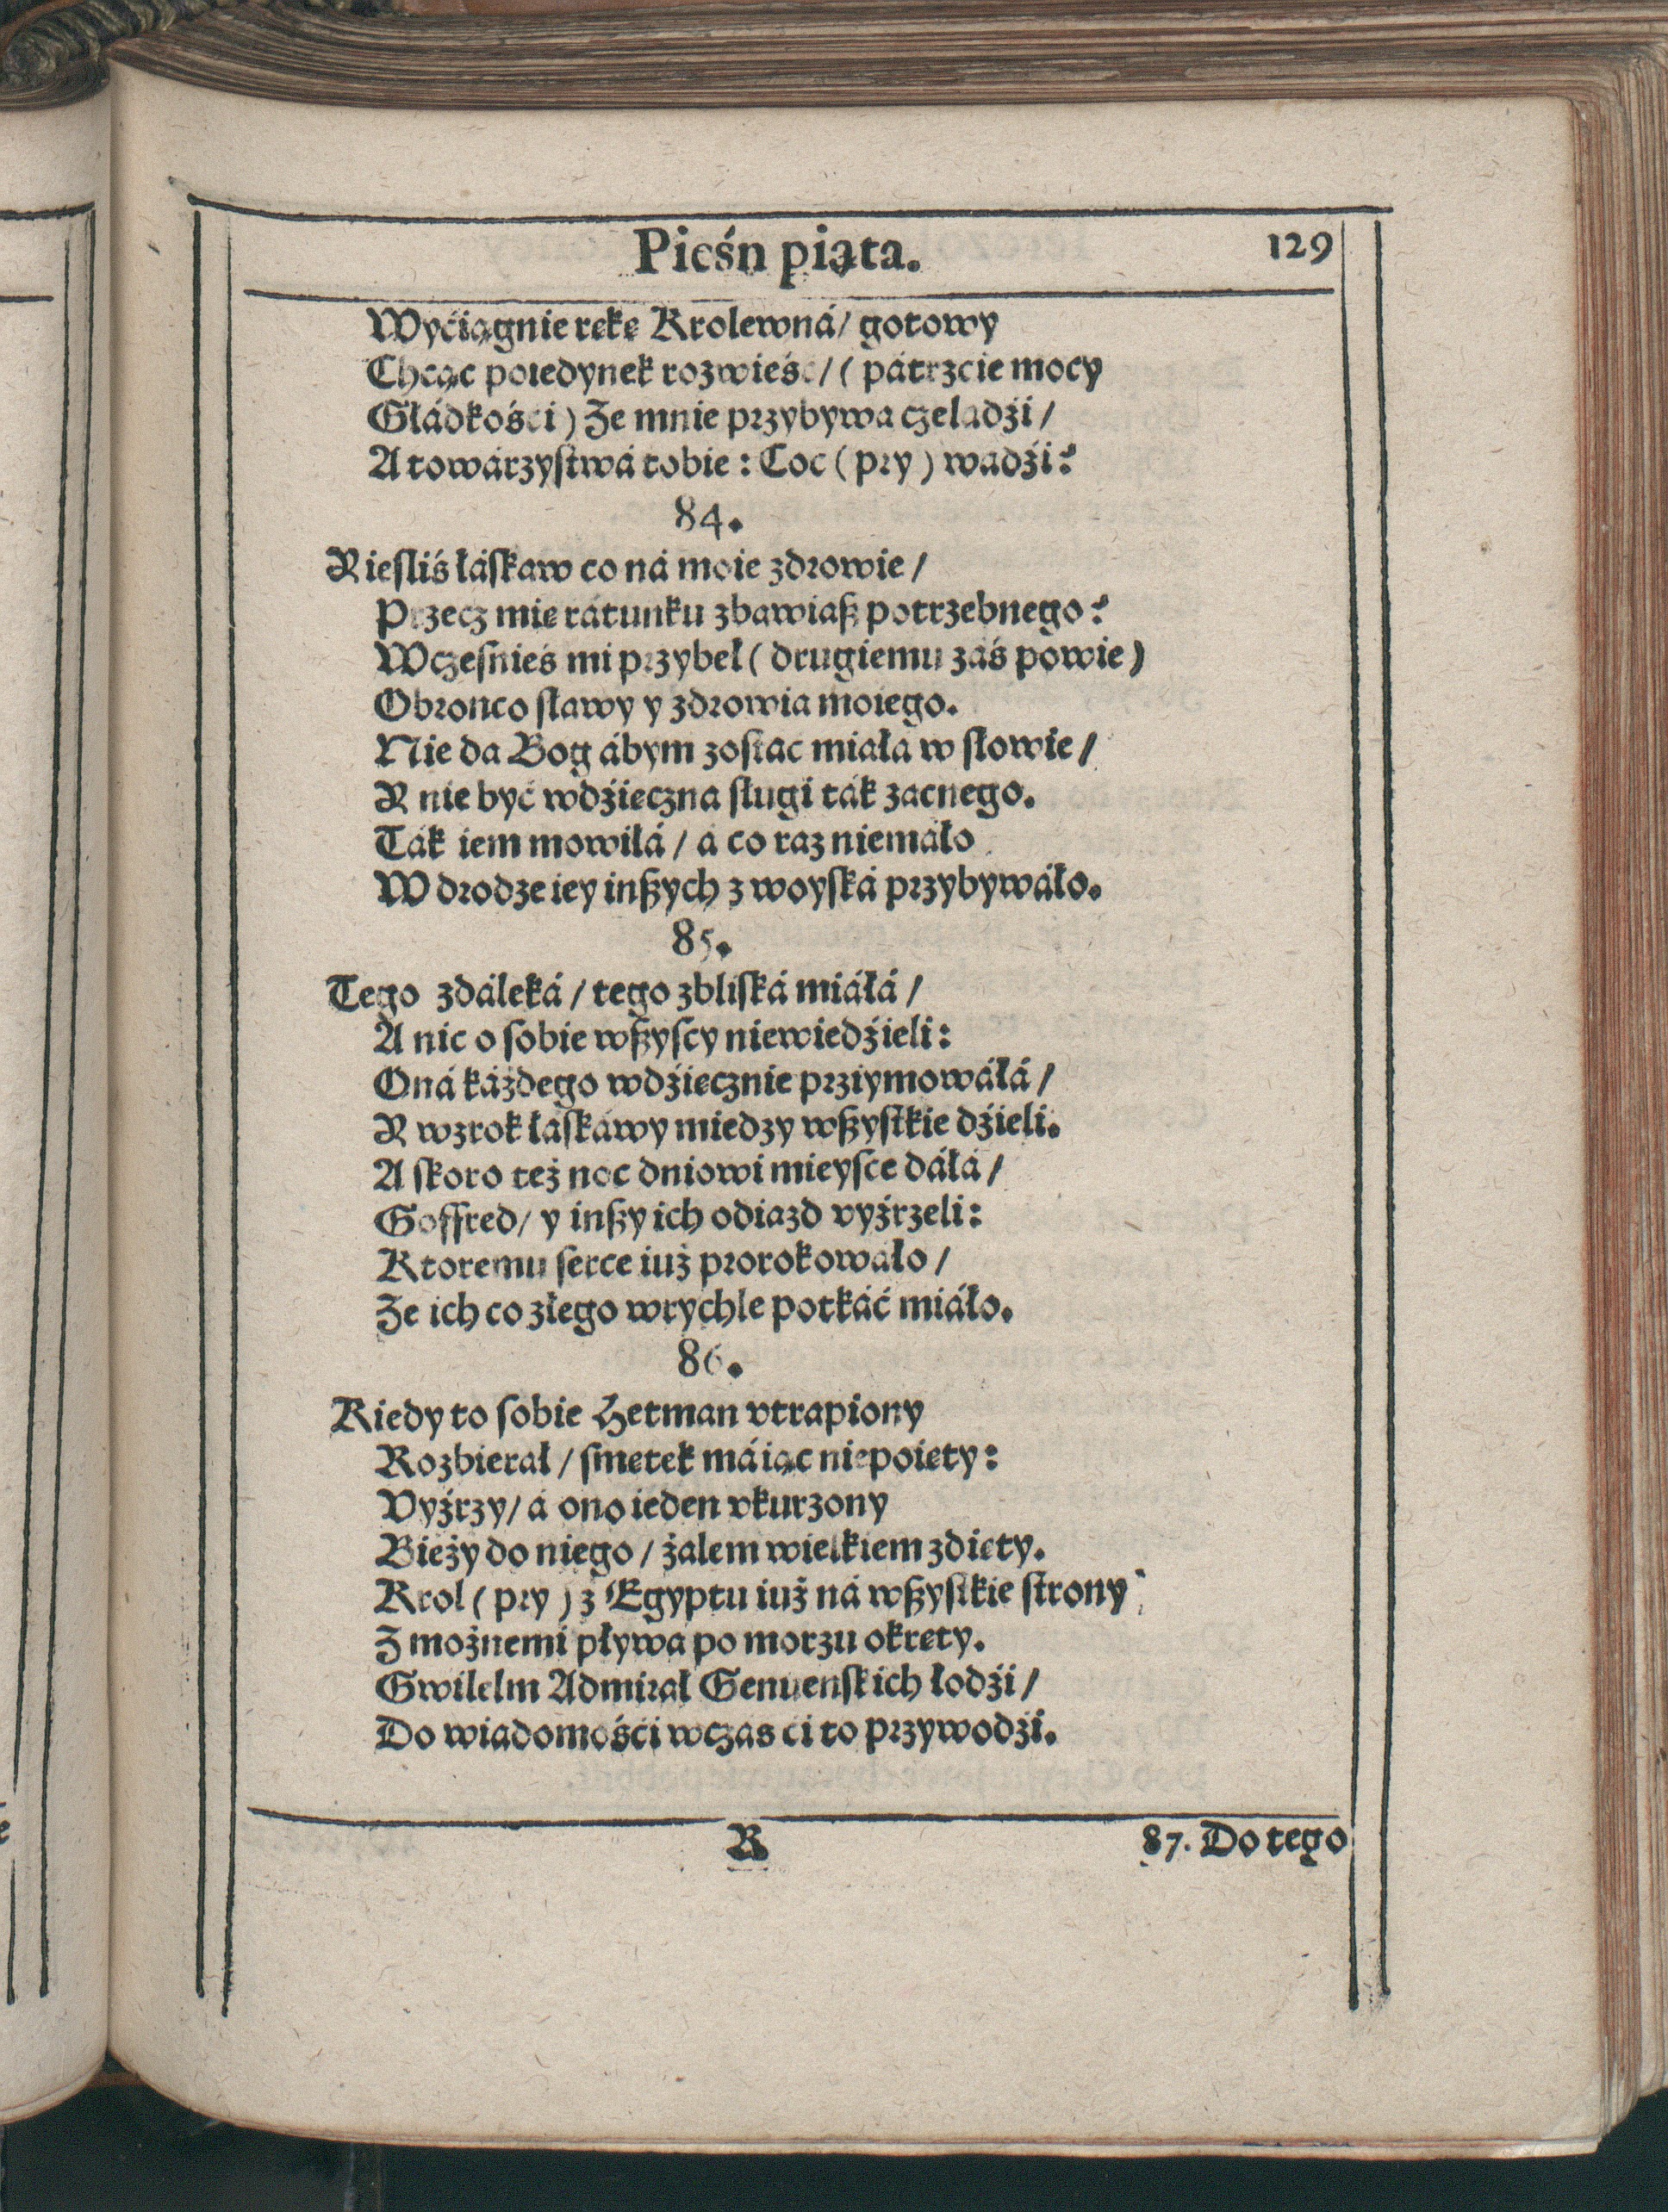 Pieśń piąta.
129
Wyćiągnie rękę Krolewná/ gotowy
Chcąc poiedynek rozwieść/ ( pátrzcie mocy
Głádkośći ) Że mnie przybywa czeladźi /
A towárzyſtwá tobie : Coć ( pry ) wadźi?
84.
Jeſliś łáſkaw co ná moie zdrowie /
Przecz mię rátunku zbawiaß potrzebnego?
Wczeſnieś mi przybeł ( drugiemu záś powie )
Obronco ſławy y zdrowia moiego.
Nie da Bog ábym zoſtać miała w ſłowie /
J nie być wdźięczna ſługi ták zacnego.
Ták iem mowiłá / á co raz niemáło
W drodze iey inßych z woyſká przybywáło.
85.
Tego zdáleká / tego zbliſká miáłá /
A nic o ſobie wßyſcy niewiedźieli:
Oná káżdego wdźięcznie prziymowáłá /
J wzrok łáſkáwy miedzy wßyſtkie dźieli.
A ſkoro też noc dniowi mieyſce dáłá /
Goffred/ y inßy ich odiazd vyźrzeli:
Ktoremu ſerce iuż prorokowáło /
Że ich co złego wrychle potkáć miáło.
86.
Kiedy to ſobie Hetman vtrapiony
Rozbierał / ſmętek máiąc niepoięty:
Vyźrzy/ á ono ieden vkurzony
Bieży do niego / żalem wielkiem zdięty.
Krol ( pry ) z Egyptu iuż ná wßyſtkie ſtrony
Z możnemi pływa po morzu okręty.
Gwilelm Admirał Genuenſkich łodźi /
Do wiadomośći wczas ci to przywodźi.
R
87. Do tego